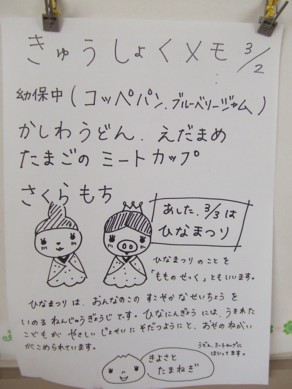 きゅうしょくメモ 3/2
幼保中(コッペパン、ブルーベリージャム)
かしわうどん、えだまめ
たまごのミートカップ
さくらもち
あした、3/3は
ひなまつり
ひなまつりのことを
「もものせっく」ともいいます。
ひなまつりは、おんなのこのすこやかなせいちょうを
いのるねんじゅうぎょうじです。ひなにんぎょうには、うまれた
こどもがやさしいじょせいにそだつようにと、おやのねがい
がこめられています。
きよさと
たまねぎ
うどん、ミートカップに
はいってます。